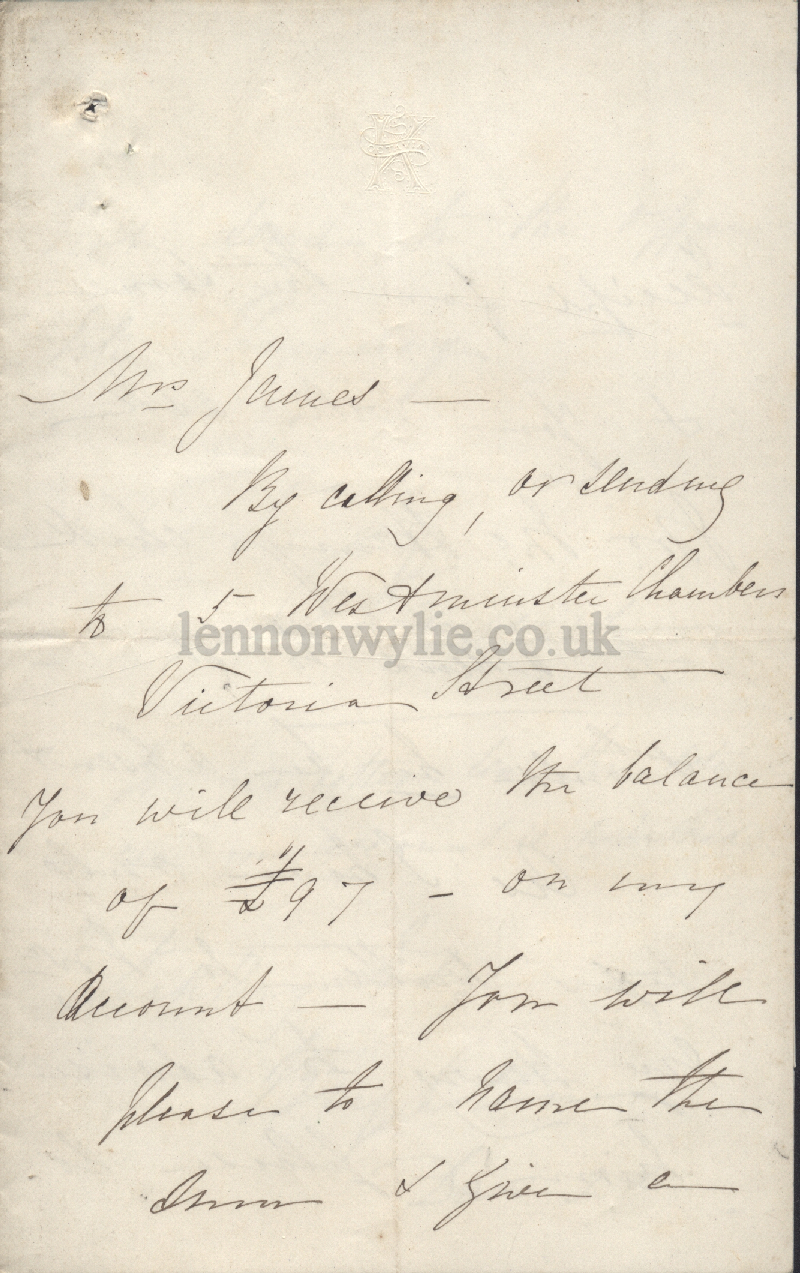 Mrs James —
By calling, or sending
to 5 Westminster Chambers
lennonwylie.co.uk
Victoria Street
You will receive the balance
of £97 - on my
Account — You will
please to name the
sum & give a